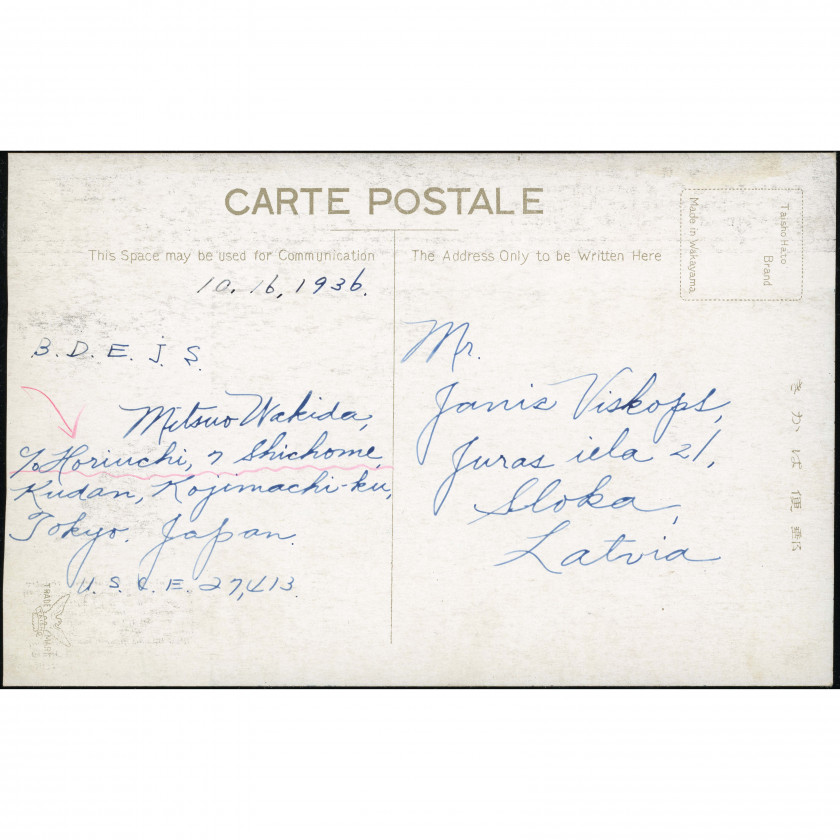 CARTE POSTALE
This Space may be used for Communication
The Address Only to be Written Here
Taisho Hato
Brand
Made in Wakayama
10.16,1936.
B. D. E. J. S.
Mitsuo Wakida,
c/o Horiuchi, 7 Shichome
Kudan, Kojimachi-ku,
Tokyo. Japan.
U. S. C. E. 27,413.
TRADE MARK
Mr.
Janis Viskops,
Juras iela 21,
Sloka,
Latvia
きかは便郵